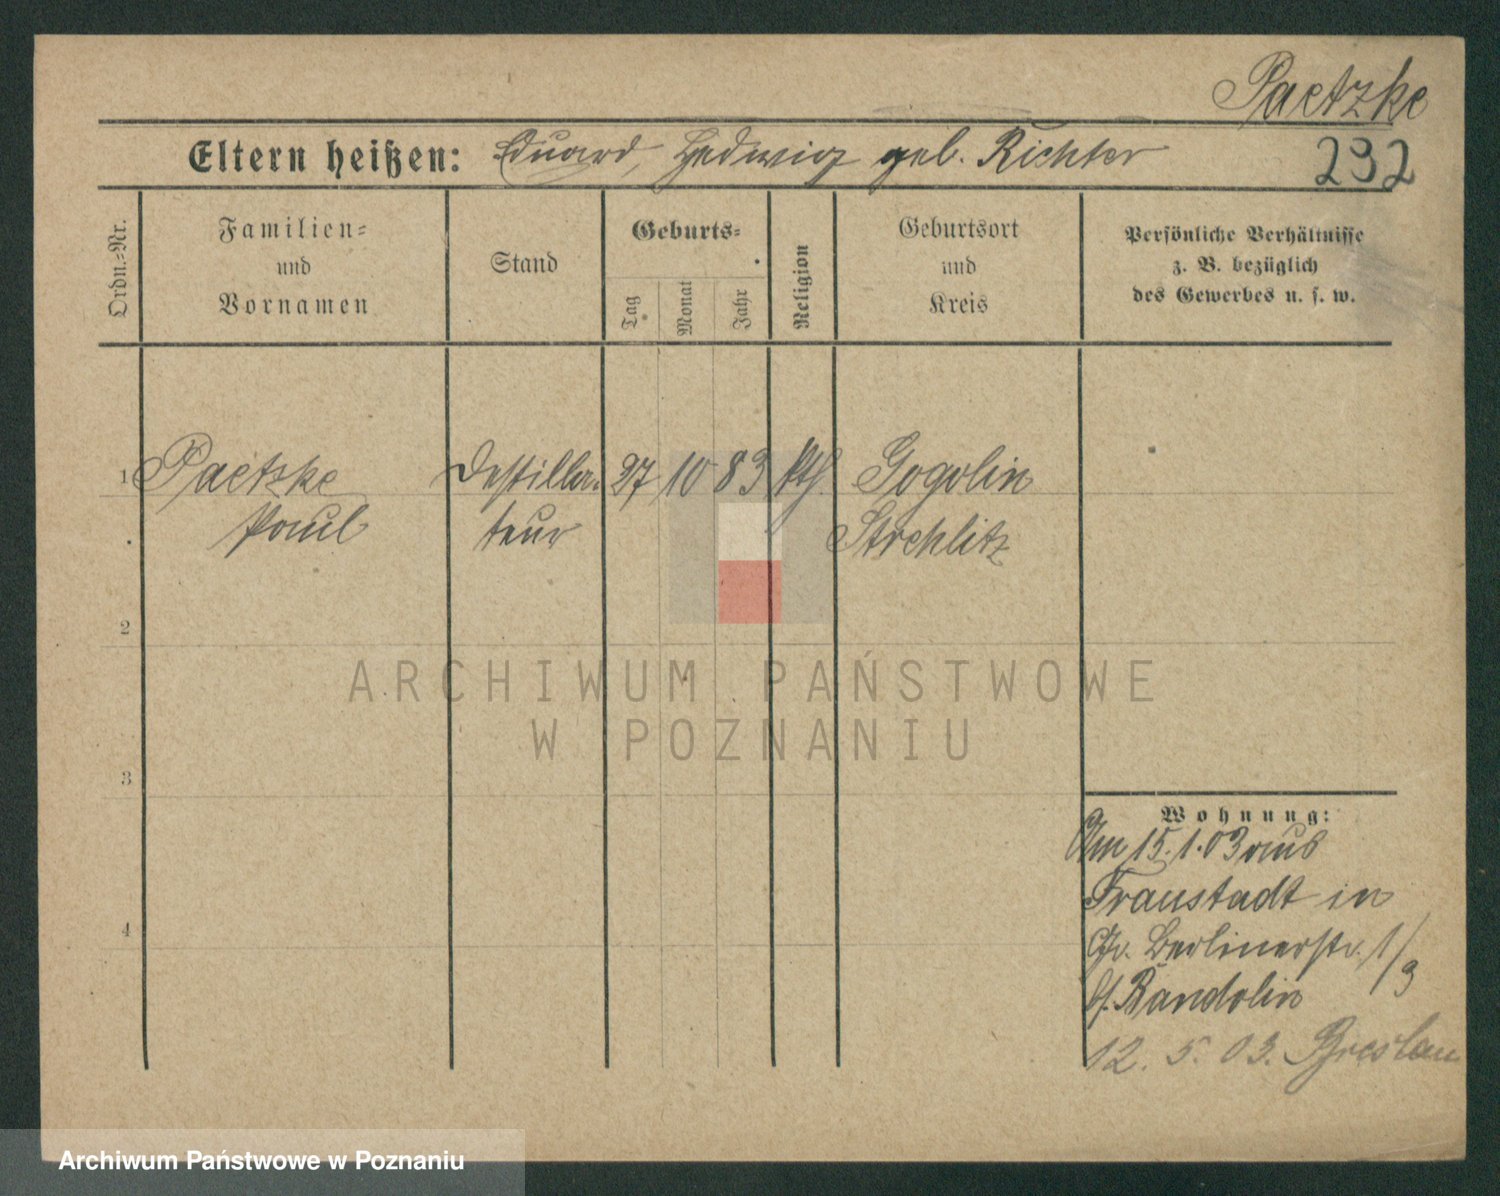 Paetzke
Eltern heißen: Eduard, Hedwig geb. Richter
232
Ordn.-Nr.
Familien-
und
Vornamen
Stand
Geburts-
Tag
Monat
Jahr
Religion
Geburtsort
und
Kreis
Persönliche Verhältnisse
z. B. bezüglich
des Gewerbes u. s. w.
1 Paetzke Destilla- 27 10 83 kth. Gogolin
Paul teur Strehlitz
2
3
4
Wohnung:
Am 15.1.03 aus
Fraustadt in
Gr. Berlinerstr. 1/3
b/. Bandolin
12. 5. 03. Breslau
ARCHIWUM PAŃSTWOWE
W POZNANIU
Archiwum Państwowe w Poznaniu